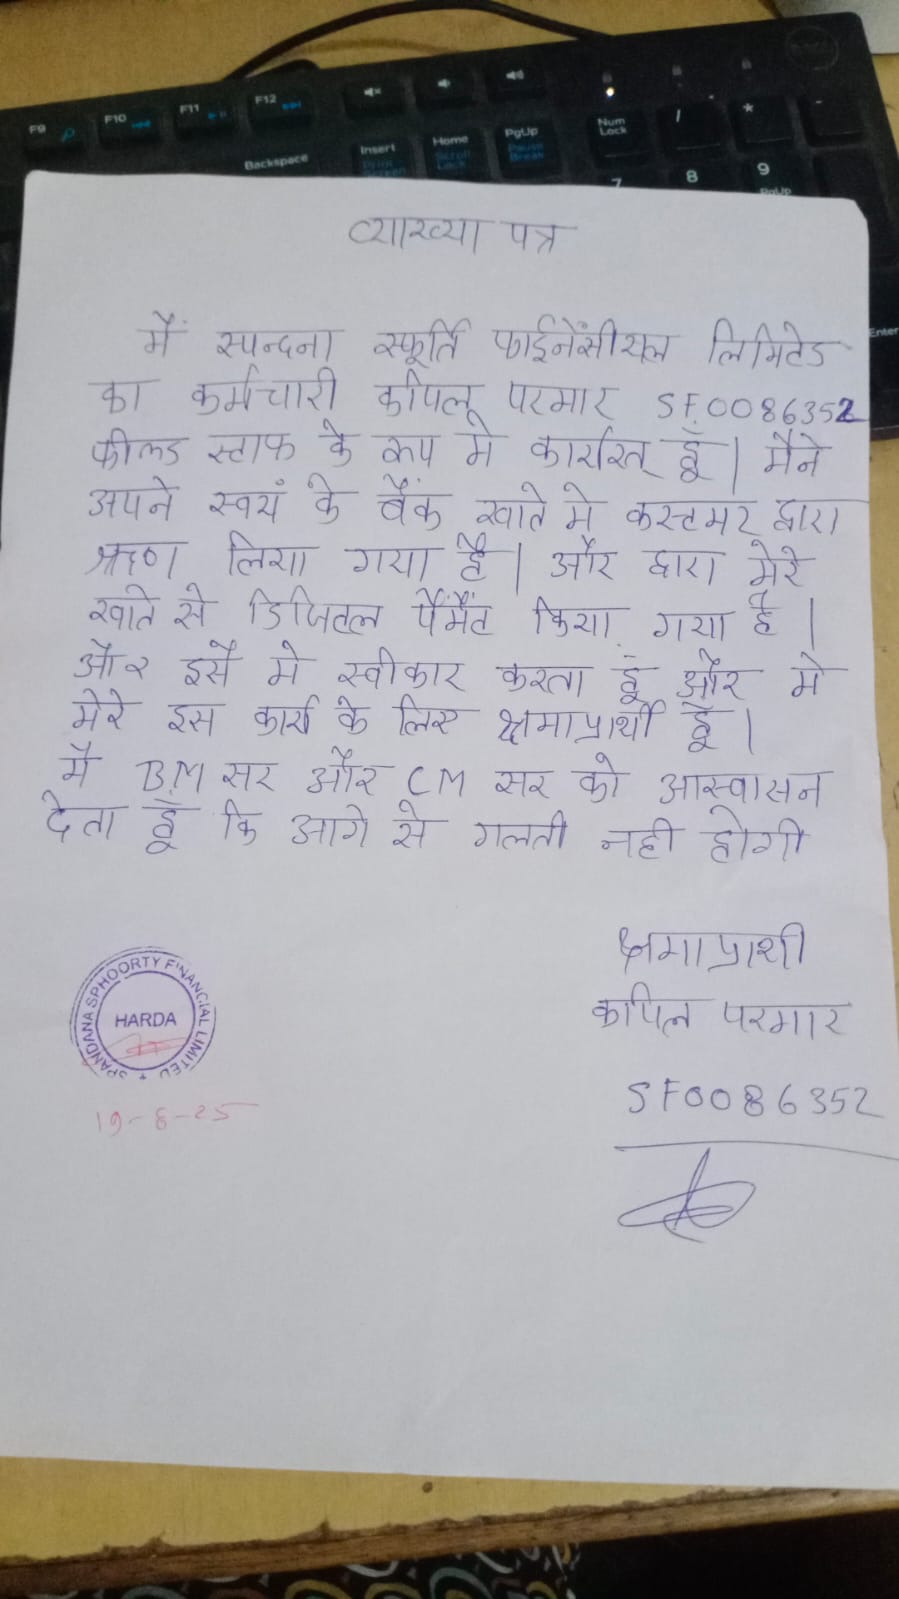 F9
F10
F11
F12
Insert
Print Screen
Home
Scroll Lock
PgUp
Pause Break
Num Lock
/
*
-
Backspace
7
8
9
PgUp
Enter
व्याख्या पत्र
मैं स्पन्दना स्फूर्ति फाईनेंसीयल लिमिटेड
का कर्मचारी कपिल परमार SF0086352
फील्ड स्टाफ के रूप मे कार्यरत हूँ। मैने
अपने स्वयं के बैंक खाते मे कस्टमर द्वारा
ऋण लिया गया है। और द्वारा मेरे
खाते से डिजिटल पैमैंट किया गया है।
और इसै मे स्वीकार करता हूं और मे
मेरे इस कार्य के लिए क्षमाप्रार्थी हूँ।
मै B.M सर और CM सर को आस्वासन
देता हूँ कि आगे से गलती नही होगी
क्षमाप्राथी
कपिल परमार
SF0086352
SPANDANA SPHOORTY FINANCIAL LIMITED
HARDA
19-8-25